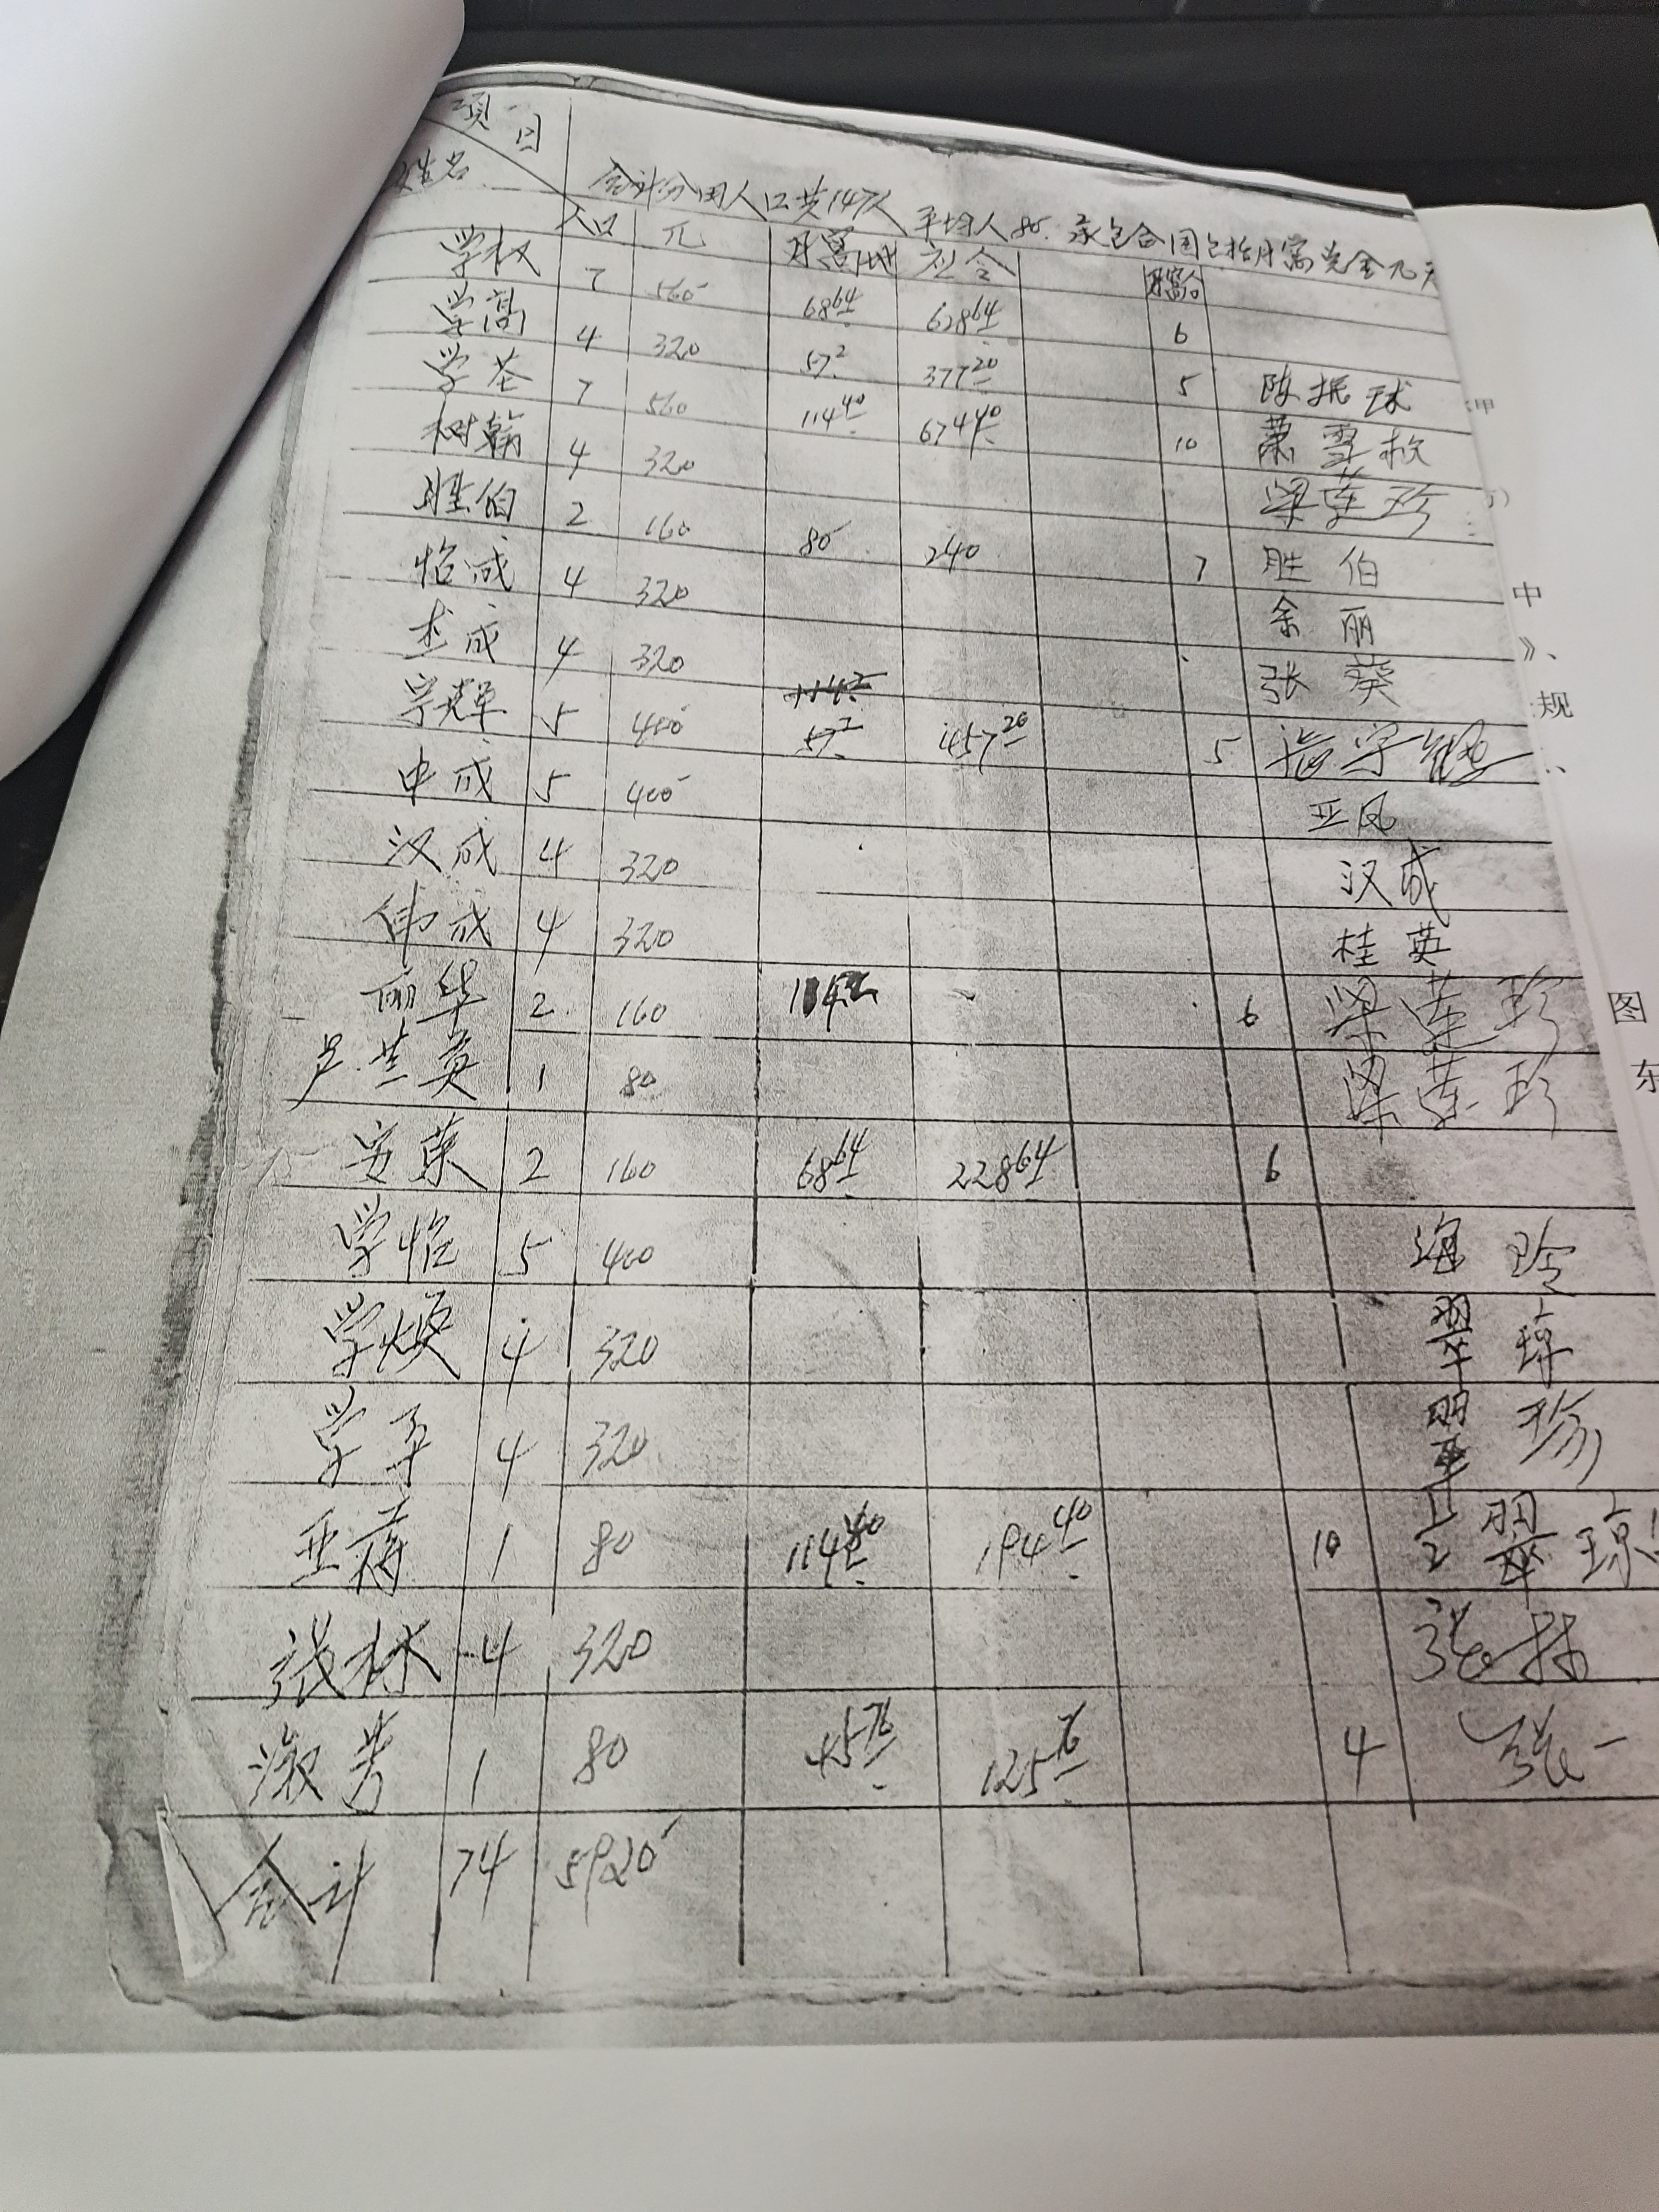 项目
姓名
合计分田人口共147人 平均人80. 承包合同包括月
人口 元 月窝地 应合
学权 7 560 68.64 628.64 6
学高 4 320 57.2 377.20 5 陈振球
学荃 7 560 114.40 674.40 10 萧雪
树翰 4 320 梁莲珍
胜伯 2 160 80 240 7 胜伯
怡成 4 320 余丽
成 4 320 张葵
学 5 400 57.2 457.20 5
中成 5 400 亚凤
汉成 4 320 汉成
伟成 4 320 桂英
丽华 2 160 114 6 梁莲珍
兰英 1 80 梁莲珍
安荣 2 160 68.64 228.64 6
学怡 5 400 海玲
学焕 4 320 翠琼
学平 4 320 翠珍
亚 1 80 114.40 194.40 10 翠琼
张林 4 320 张林
淑芳 1 80 45.76 125.76 4 张
合计 74 5920
甲
中
》、
规
图
东